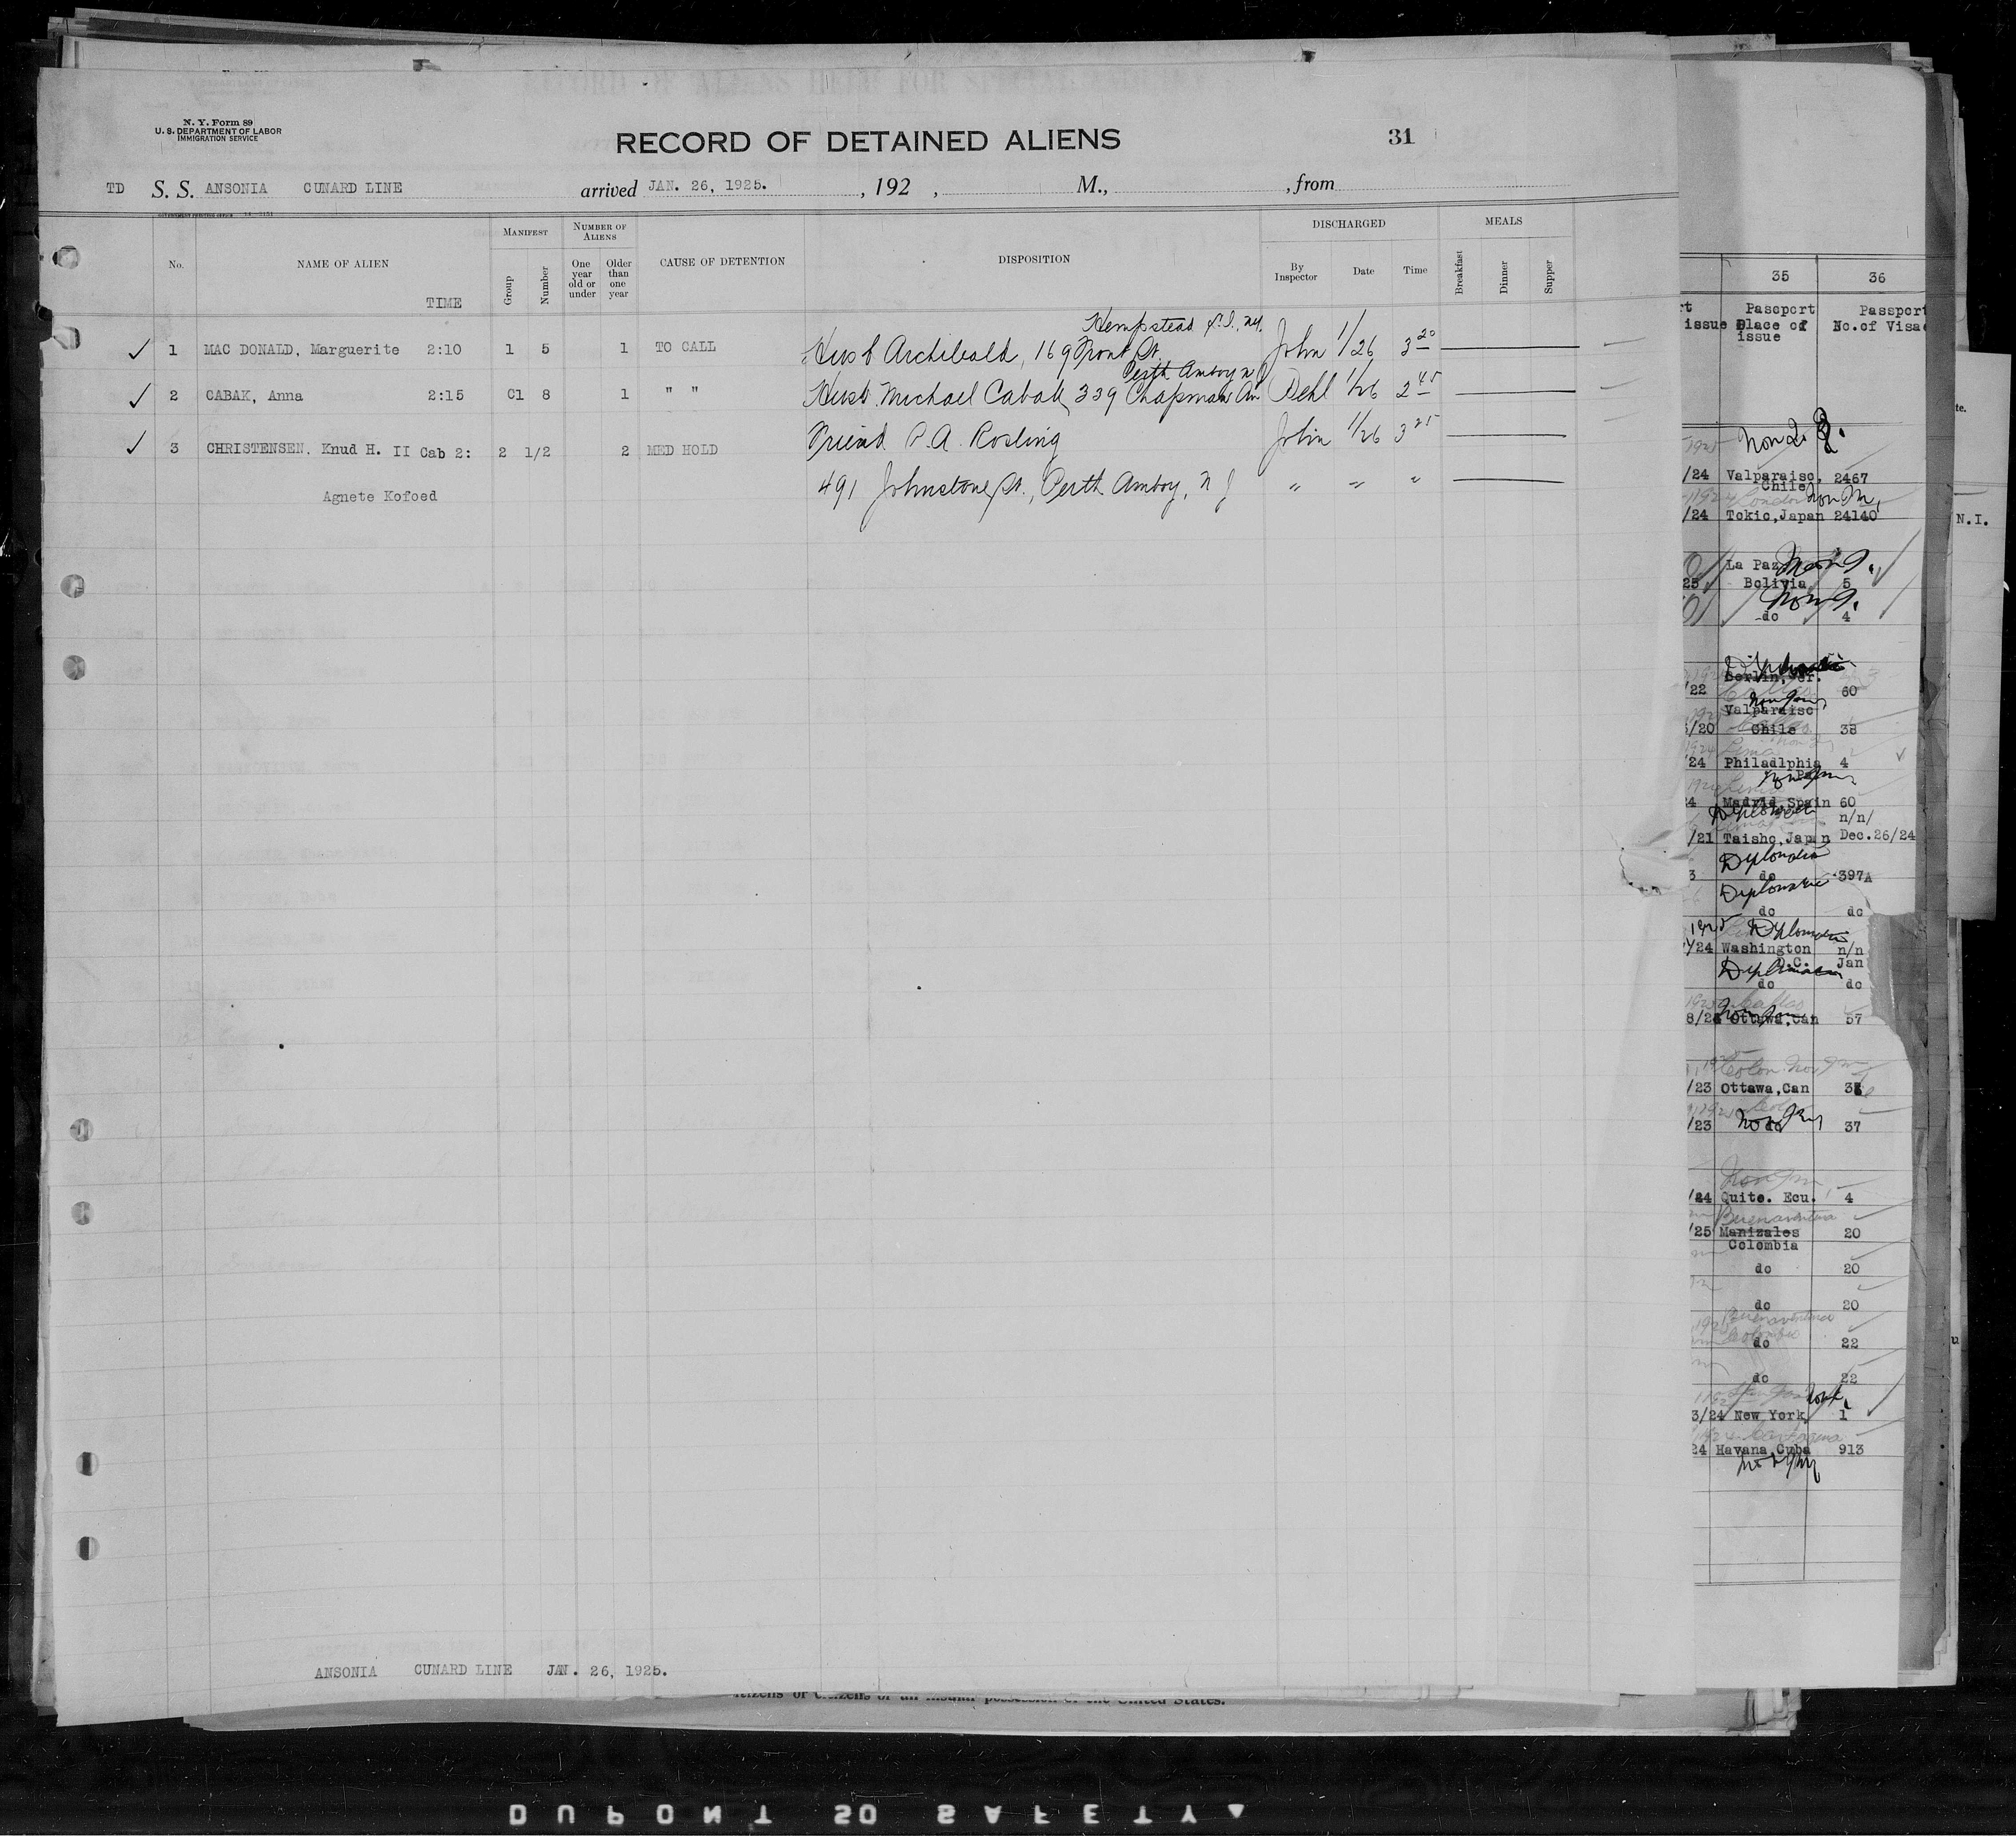 N. Y. Form 89
U. S. DEPARTMENT OF LABOR
IMMIGRATION SERVICE
RECORD OF DETAINED ALIENS
31
TD S. S. ANSONIA CUNARD LINE arrived JAN. 26, 1925. , 192 , M., , from
No. NAME OF ALIEN TIME MANIFEST Group Number NUMBER OF ALIENS One year old or under Older than one year CAUSE OF DETENTION DISPOSITION DISCHARGED By Inspector Date Time MEALS Breakfast Dinner Supper
Hempstead L.I., N.Y.
✓ 1 MAC DONALD, Marguerite 2:10 1 5 1 TO CALL Husb Archibald, 169 Front St. John 1/26 3 20
Perth Amboy N J
✓ 2 CABAK, Anna 2:15 C1 8 1 " " Husb. Michael Cabak, 339 Chapman Av Dehl 1/26 2 45
✓ 3 CHRISTENSEN, Knud H. II Cab 2: 2 1/2 2 MED HOLD Friend P. A. Rosling John 1/26 3 25
Agnete Kofoed 491 Johnstone St., Perth Amboy, N J " " "
ANSONIA CUNARD LINE JAN. 26, 1925.
35 36
issue Pasoport Place of issue Passport No. of Visa
Non
/24 Valparaiso, Chile 2467
/24 Tokio, Japan 24140
N.I.
25 La Paz Bolivia 5
do 4
/22 Berlin, Ger. 60
/20 Valparaiso Chile 38
/24 Philadlphia 4
4 Madrid, Spain 60
n/n/
/21 Taisho, Japan Dec. 26/24
Diplomatic
3 do 397A
Diplomatic
do do
Diplomatic
/24 Washington D.C. n/n Jan
Diplomatic
do do
8/24 Ottawa, Can 57
/23 Ottawa, Can
/23 do 37
/24 Quito. Ecu. 4
Buenaventura
/25 Manizales Colombia 20
do 20
do 20
Buenaventura
Colombia
do 22
do 22
3/24 New York 1
Cartagena
24 Havana, Cuba 913
citizens or citizens of an insular possession of the United States.
DUPONT SO SAFETY